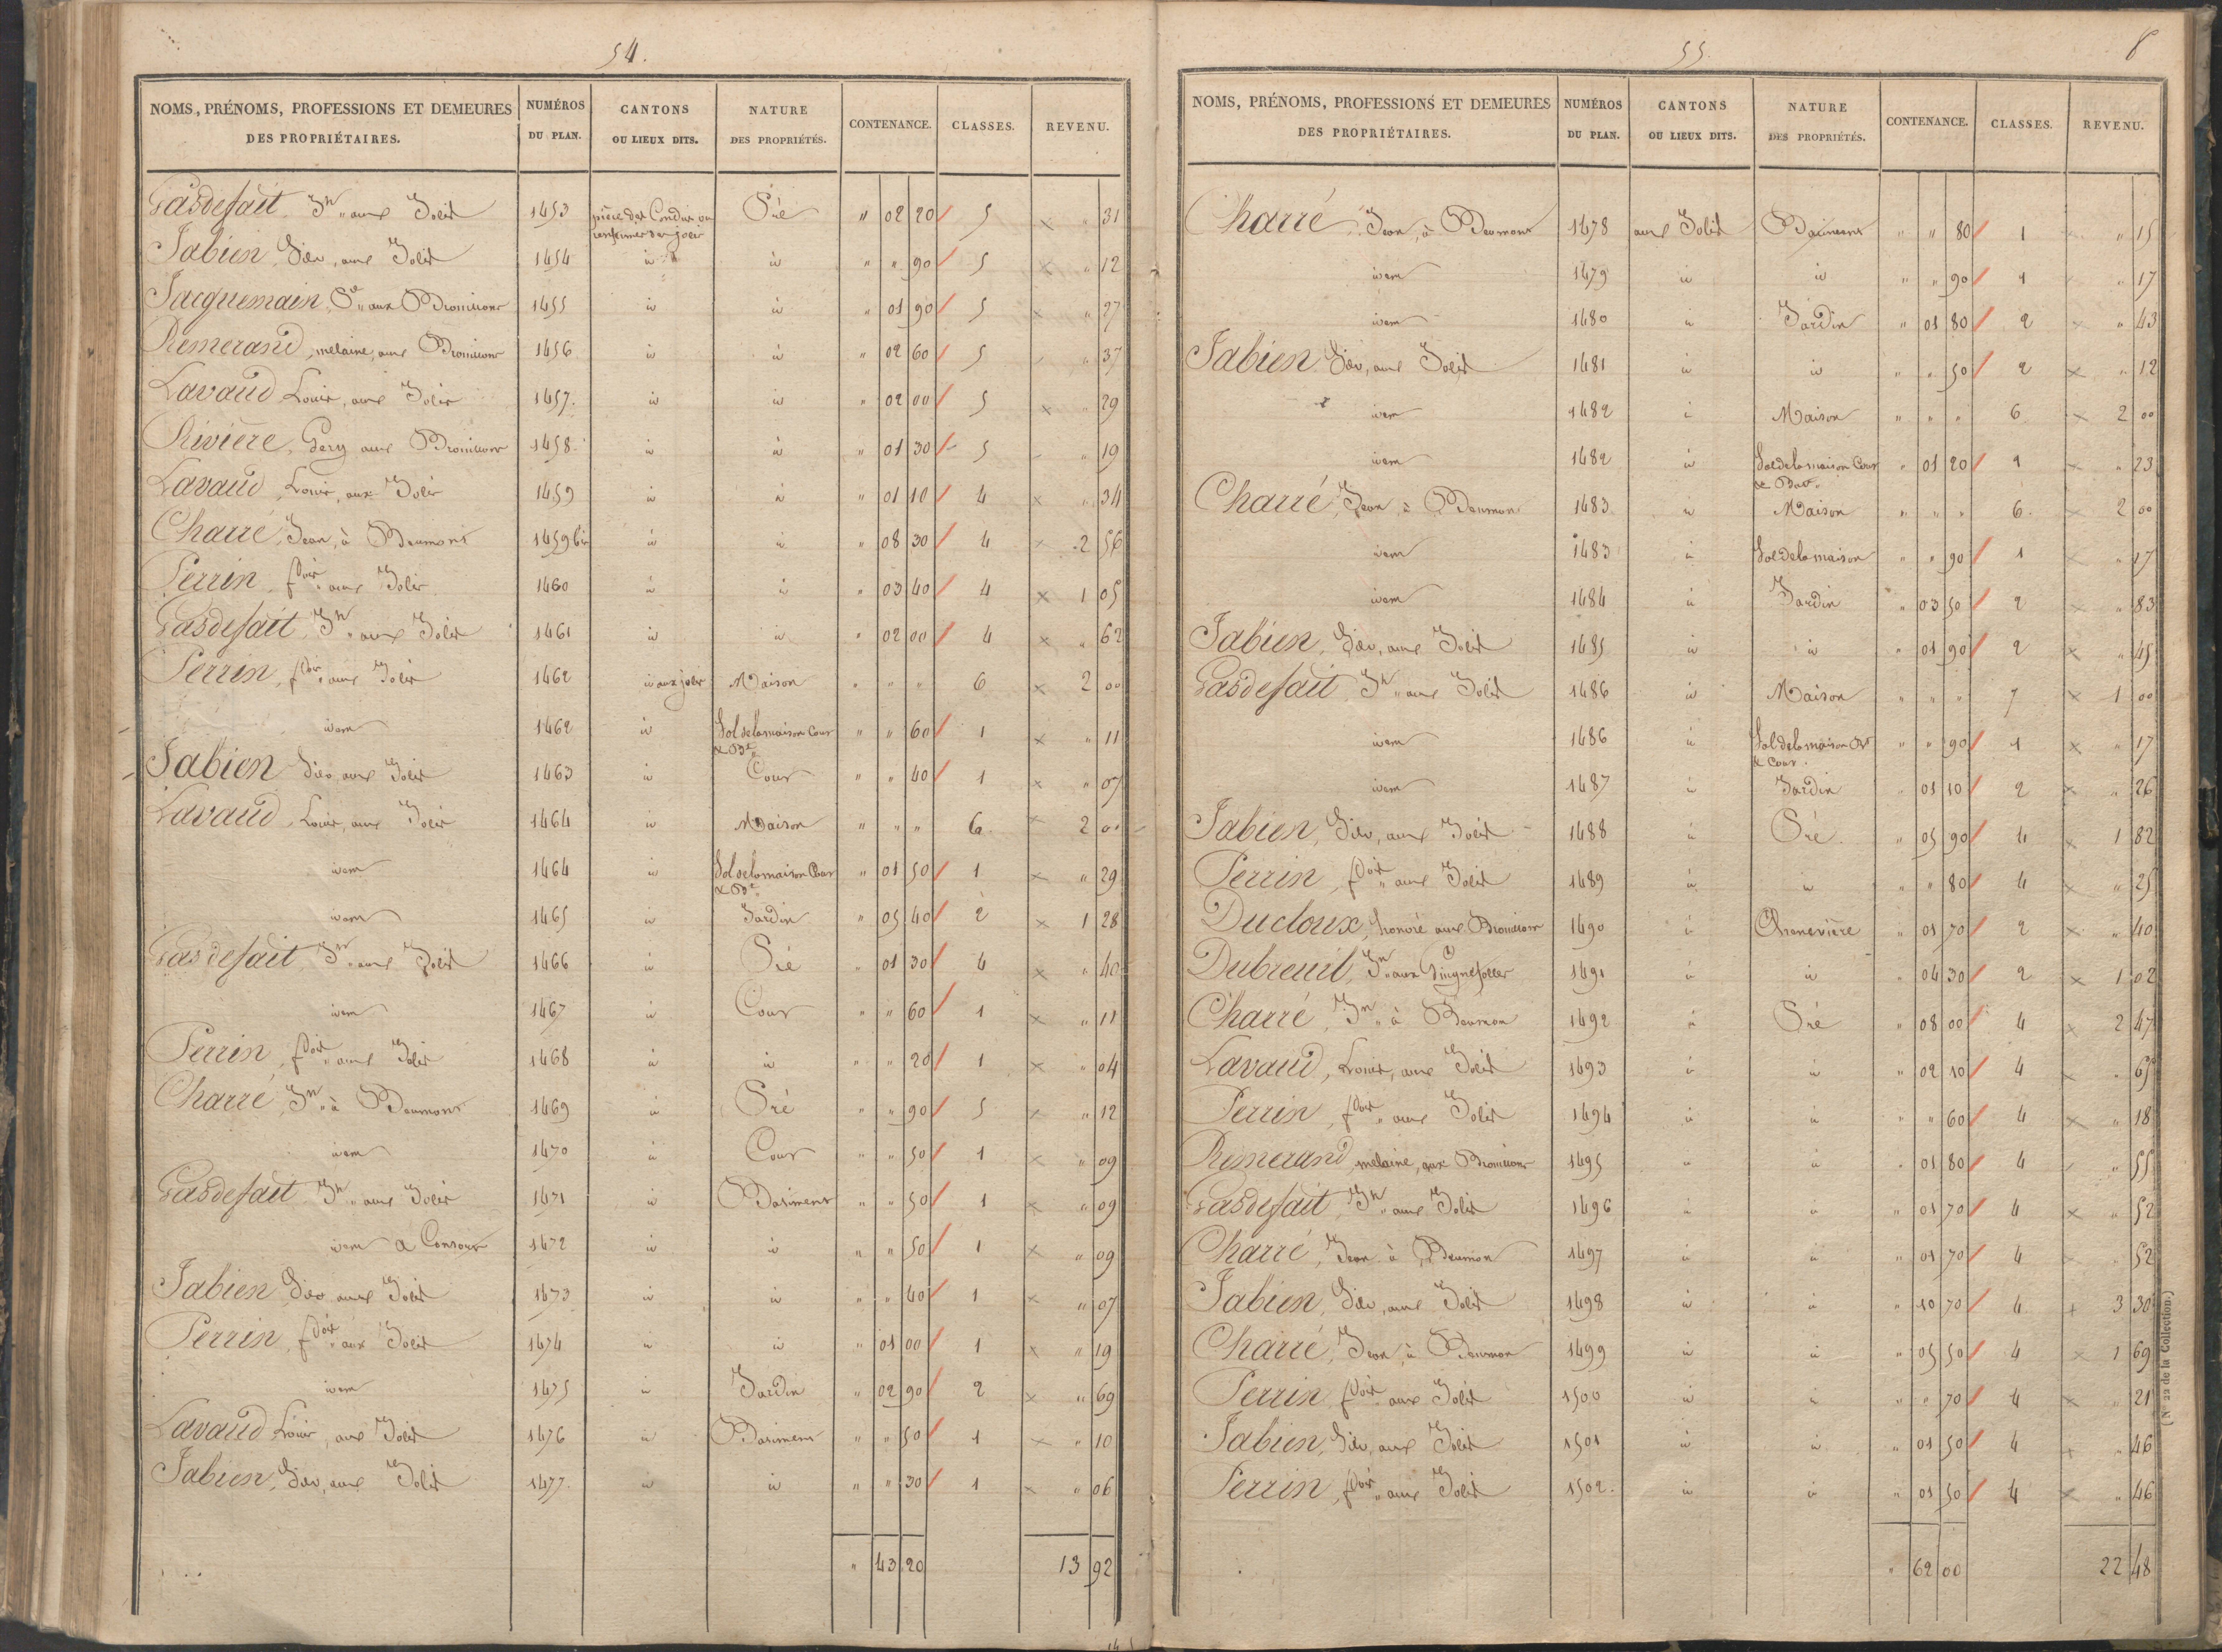 54.
NOMS, PRÉNOMS, PROFESSIONS ET DEMEURES DES PROPRIÉTAIRES. NUMÉROS DU PLAN. CANTONS OU LIEUX DITS. NATURE DES PROPRIÉTÉS. CONTENANCE. CLASSES. REVENU.
Pasdefait, Jn aux Jolis 1453 Pré " 02 20 5 " 31
Fabien aux Jolis 1454 id id " " 90 5 " 12
Jacquemain, aux 1455 id id " 01 90 5 " 27
Remerand, melaine, aux 1456 id id " 02 60 5 " 37
Lavaud Louis, aux Jolis 1457. id id " 02 00 5 " 29
Rivière, Gery aux 1458 id id " 01 30 5 " 19
Lavaud, Louis, aux Jolis 1459 id id " 01 10 4 " 34
Charré, Jean, à Beumont 1459 bis id id " 08 30 4 2 56
Perrin, aux Jolis 1460 id id " 03 40 4 1 05
Pasdefait, Jn aux Jolis 1461 id id " 02 00 4 " 62
Perrin, aux Jolis 1462 id aux jolis Maison " " " 6 2 00
idem 1462 id Sol de la maison Cour & Bt " " 60 1 " 11
Fabien aux Jolis 1463 id Cour " " 40 1 " 07
Lavaud, Louis, aux Jolis 1464 id Maison " " " 6 2 00
idem 1464 id Sol de la maison Cour & Bt " 01 50 1 " 29
idem 1465 id Jardin " 05 40 2 1 28
Pasdefait, Jn aux Jolis 1466 id Pré " 01 30 4 " 40
idem 1467 id Cour " " 60 1 " 11
Perrin, aux Jolis 1468 id id " " 20 1 " 04
Charré, Jn à Beumont 1469 id Pré " " 90 5 " 12
idem 1470 id Cour " " 50 1 " 09
Pasdefait Jn aux Jolis 1471 id Batiment " " 50 1 " 09
idem & Consors 1472 id id " " 50 1 " 09
Fabien aux Jolis 1473 id id " " 40 1 " 07
Perrin, aux Jolis 1474 id id " 01 00 1 " 19
idem 1475 id Jardin " 02 90 2 " 69
Lavaud Louis, aux Jolis 1476 id Batiment " " 50 1 " 10
Fabien, aux Jolis 1477. id id " " 30 1 " 06
" 43 20 13 92
55.
8
NOMS, PRÉNOMS, PROFESSIONS ET DEMEURES DES PROPRIÉTAIRES. NUMÉROS DU PLAN. CANTONS OU LIEUX DITS. NATURE DES PROPRIÉTÉS. CONTENANCE. CLASSES. REVENU.
Charré, Jean, à Beumont 1478 aux Jolis Batiment " " 80 1 " 15
idem 1479 id id " " 90 1 " 17
idem 1480 id Jardin " 01 80 2 " 43
Fabien aux Jolis 1481 id id " " 50 2 " 12
idem 1482 id Maison " " " 6 2 00
idem 1482 id Sol de la maison Cour & Bat. " 01 20 1 " 23
Charré, Jean, à Beumont 1483 id Maison " " " 6 2 00
idem 1483 id Sol de la maison " " 90 1 " 17
idem 1484 id Jardin " 03 50 2 " 83
Fabien, aux Jolis 1485 id id " 01 90 2 " 45
Pasdefait, Jn aux Jolis 1486 id Maison " " " 7 1 00
idem 1486 id Sol de la maison Bt & Cour. " " 90 1 " 17
idem 1487 id Jardin " 01 10 2 " 26
Fabien, aux Jolis 1488 id Pré " 05 90 4 1 82
Perrin, aux Jolis 1489 id id " " 80 4 " 25
Ducloux, honoré aux 1490 id Chenevière " 01 70 2 " 40
Dubreuil, Jn aux 1491 id id " 04 30 2 1 02
Charré, Jn à Beumon 1492 id Pré " 08 00 4 2 47
Lavaud, Louis, aux Jolis 1493 id id " 02 10 4 " 65
Perrin, aux Jolis 1494 id id " " 60 4 " 18
Remerand, melaine, aux 1495 id id " 01 80 4 " 55
Pasdefait, Jn aux Jolis 1496 id id " 01 70 4 " 52
Charré, Jean à Beumon 1497 id id " 01 70 4 " 52
Fabien, aux Jolis 1498 id id " 10 70 4 3 30
Charré, Jean, à Beumon 1499 id id " 05 50 4 1 69
Perrin, aux Jolis 1500 id id " " 70 4 " 21
Fabien, aux Jolis 1501 id id " 01 50 4 " 46
Perrin, aux Jolis 1502. id id " 01 50 4 " 46
" 62 00 22 48
(N° 22 de la Collection.)